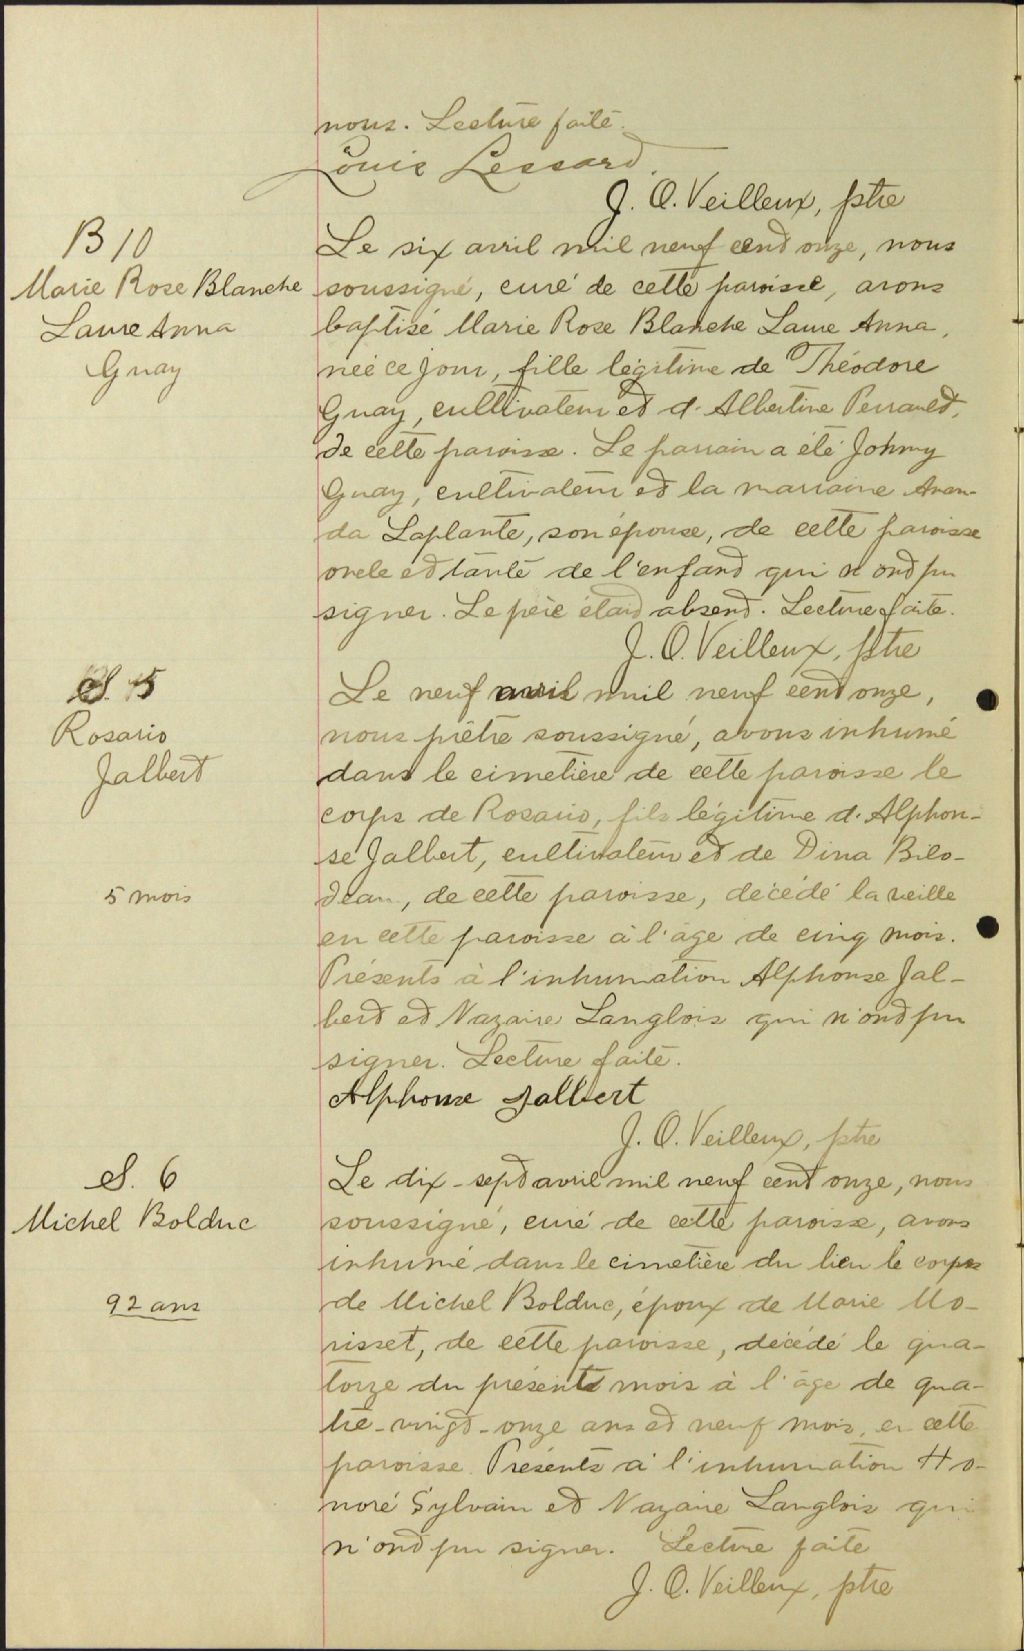 nous. Lecture faite.
Louis Lessard.
J. O. Veilleux, ptre
B 10
Marie Rose Blanche
Laure Anna
Guay
Le six avril mil neuf cent onze, nous
soussigné, curé de cette paroisse, avons
baptisé Marie Rose Blanche Laure Anna,
née ce jour, fille légitime de Théodore
Guay, cultivateur et d'Albertine Perrault,
de cette paroisse. Le parrain a été Johnny
Guay, cultivateur et la marraine Aman-
da Laplante, son épouse, de cette paroisse
oncle et tante de l'enfant qui n'ont pu
signer. Le père étant absent. Lecture faite.
J. O. Veilleux, ptre
S. 5
Rosario
Jalbert
5 mois
Le neuf avril mil neuf cent onze,
nous prêtre soussigné, avons inhumé
dans le cimetière de cette paroisse le
corps de Rosario, fils légitime d'Alphon-
se Jalbert, cultivateur et de Dina Bilo-
deau, de cette paroisse, décédé la veille
en cette paroisse à l'âge de cinq mois.
Présents à l'inhumation Alphonse Jal-
bert et Nazaire Langlois qui n'ont pu
signer. Lecture faite.
Alphonse Jalbert
J. O. Veilleux, ptre
S. 6
Michel Bolduc
92 ans
Le dix-sept avril mil neuf cent onze, nous
soussigné, curé de cette paroisse, avons
inhumé dans le cimetière du lieu le corps
de Michel Bolduc, époux de Marie Mo-
risset, de cette paroisse, décédé le qua-
torze du présent mois à l'âge de qua-
tre-vingt-onze ans et neuf mois, en cette
paroisse. Présents à l'inhumation Ho-
noré Sylvain et Nazaire Langlois qui
n'ont pu signer. Lecture faite
J. O. Veilleux, ptre